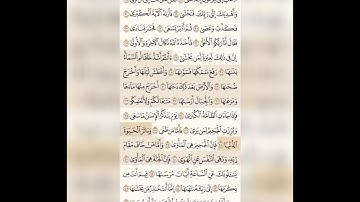 وَأَهْدِيَكَ إِلَىٰ رَبِّكَ فَتَخْشَىٰ ۝ فَأَرَىٰهُ ٱلْءَايَةَ ٱلْكُبْرَىٰ ۝
فَكَذَّبَ وَعَصَىٰ ۝ ثُمَّ أَدْبَرَ يَسْعَىٰ ۝ فَحَشَرَ فَنَادَىٰ ۝
فَقَالَ أَنَا۠ رَبُّكُمُ ٱلْأَعْلَىٰ ۝ فَأَخَذَهُ ٱللَّهُ نَكَالَ ٱلْءَاخِرَةِ وَٱلْأُولَىٰ ۝
إِنَّ فِى ذَٰلِكَ لَعِبْرَةً لِّمَن يَخْشَىٰٓ ۝ ءَأَنتُمْ أَشَدُّ خَلْقًا أَمِ ٱلسَّمَآءُ
بَنَىٰهَا ۝ رَفَعَ سَمْكَهَا فَسَوَّىٰهَا ۝ وَأَغْطَشَ لَيْلَهَا وَأَخْرَجَ
ضُحَىٰهَا ۝ وَٱلْأَرْضَ بَعْدَ ذَٰلِكَ دَحَىٰهَآ ۝ أَخْرَجَ مِنْهَا مَآءَهَا
وَمَرْعَىٰهَا ۝ وَٱلْجِبَالَ أَرْسَىٰهَا ۝ مَتَٰعًا لَّكُمْ وَلِأَنْعَٰمِكُمْ ۝
فَإِذَا جَآءَتِ ٱلطَّآمَّةُ ٱلْكُبْرَىٰ ۝ يَوْمَ يَتَذَكَّرُ ٱلْإِنسَٰنُ مَا سَعَىٰ ۝
وَبُرِّزَتِ ٱلْجَحِيمُ لِمَن يَرَىٰ ۝ فَأَمَّا مَن طَغَىٰ ۝ وَءَاثَرَ ٱلْحَيَوٰةَ
ٱلدُّنْيَا ۝ فَإِنَّ ٱلْجَحِيمَ هِىَ ٱلْمَأْوَىٰ ۝ وَأَمَّا مَنْ خَافَ مَقَامَ
رَبِّهِۦ وَنَهَى ٱلنَّفْسَ عَنِ ٱلْهَوَىٰ ۝ فَإِنَّ ٱلْجَنَّةَ هِىَ ٱلْمَأْوَىٰ ۝
يَسْـَٔلُونَكَ عَنِ ٱلسَّاعَةِ أَيَّانَ مُرْسَىٰهَا ۝ فِيمَ أَنتَ مِن
ذِكْرَىٰهَآ ۝ إِلَىٰ رَبِّكَ مُنتَهَىٰهَآ ۝ إِنَّمَآ أَنتَ مُنذِرُ مَن يَخْشَىٰهَا ۝